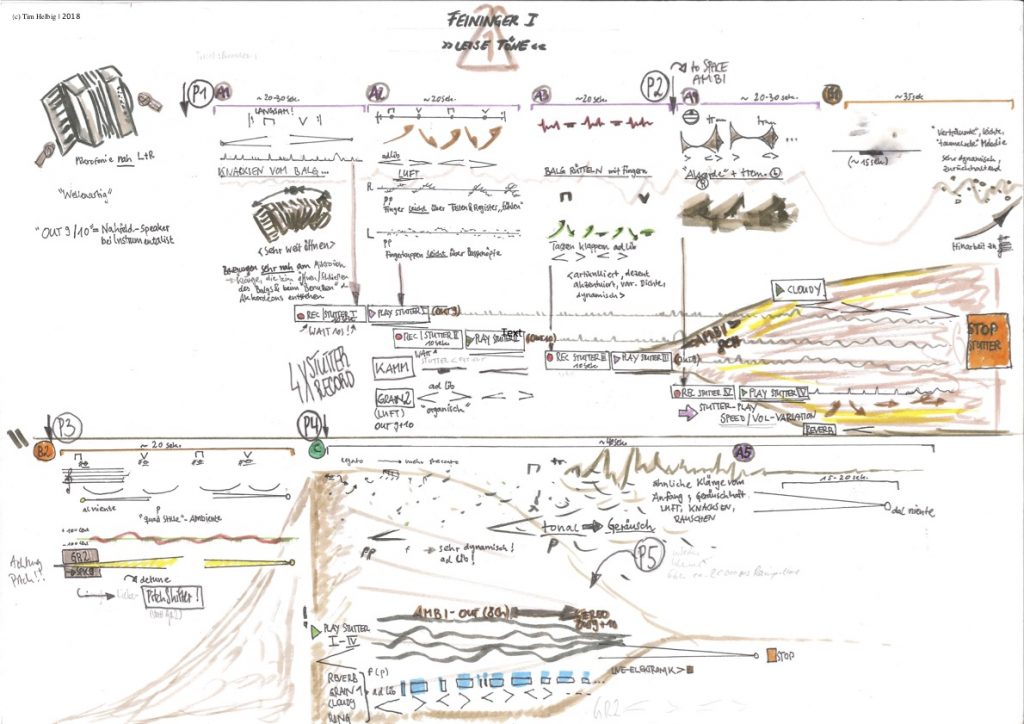 (c) Tim Helbig | 2018
FEININGER I
1
>> LEISE TÖNE <<
P1
A1
~ 20-30 sek.
LANGSAM!
A2
~ 20 sek.
A3
~ 20 sek.
P2
to SPACE
AMBI
A4
~ 20-30 sek.
trem
trem
B1
~ 35 sek.
(~ 15 sek.)
"Verträumte", leichte,
Melodie
sehr dynamisch,
zurückhaltend
Hinarbeit an
Mikrofonie nah L+R
"Wellenartig"
"OUT 9/10" = Nahfeld-Speaker
bei Instrumentalist
KNACKSEN VOM BALG...
<sehr weit öffnen>
Bewegungen sehr nah am Akkordeon
des Balgs & beim "Berühren" d.
Akkordeons entstehen
ad lib
LUFT
R
pp
Finger leicht über Tasten & Register "fühlen"
L
pp
Fingerkuppen leicht über Bassknöpfe
BALG RÜTTELN mit Fingern
Tasten klappen ad lib
<artikuliert, dezent
akzentuiert, var. Dichte,
dynamisch>
"Akkorde" + trem.
L
R
REC STUTTER I
PLAY STUTTER I
(OUT 9)
WAIT 10s!!
REC STUTTER II
10 sek
PLAY STUTTER II
Text
(OUT 10)
REC STUTTER III
10 sek
PLAY STUTTER III
REC STUTTER IV
PLAY STUTTER IV
STUTTER-PLAY
SPEED/VOL-VARIATION
REVERB
CLOUDY
AMBI
8CH
STOP
STUTTER
4x STUTTER
RECORD
KAMM
WAIT
GRAIN 2
(LUFT)
OUT 9+10
ad lib
"organisch"
B2
P3
~ 20 sek.
al niente
P
-Ambiente
Achtung
Pitch!!
GR2
SPACE
detune
PitchShifter!
P4
C
legato
mehr staccato
~ 40 sek.
A5
15-20 sek.
ähnliche Klänge vom
Anfang, Geräuschhaft
LUFT, KNACKSEN,
RAUSCHEN
dal niente
tonal
Geräusch
PP
f
sehr dynamisch!
ad lib!
P
P5
AMBI-OUT (8CH)
STEREO
Out 9+10
PLAY STUTTER
I-IV
STOP
LIVE-ELEKTRONIK >
REVERB
GRAIN 1
CLOUDY
RING
f (p)
ad lib
GR2